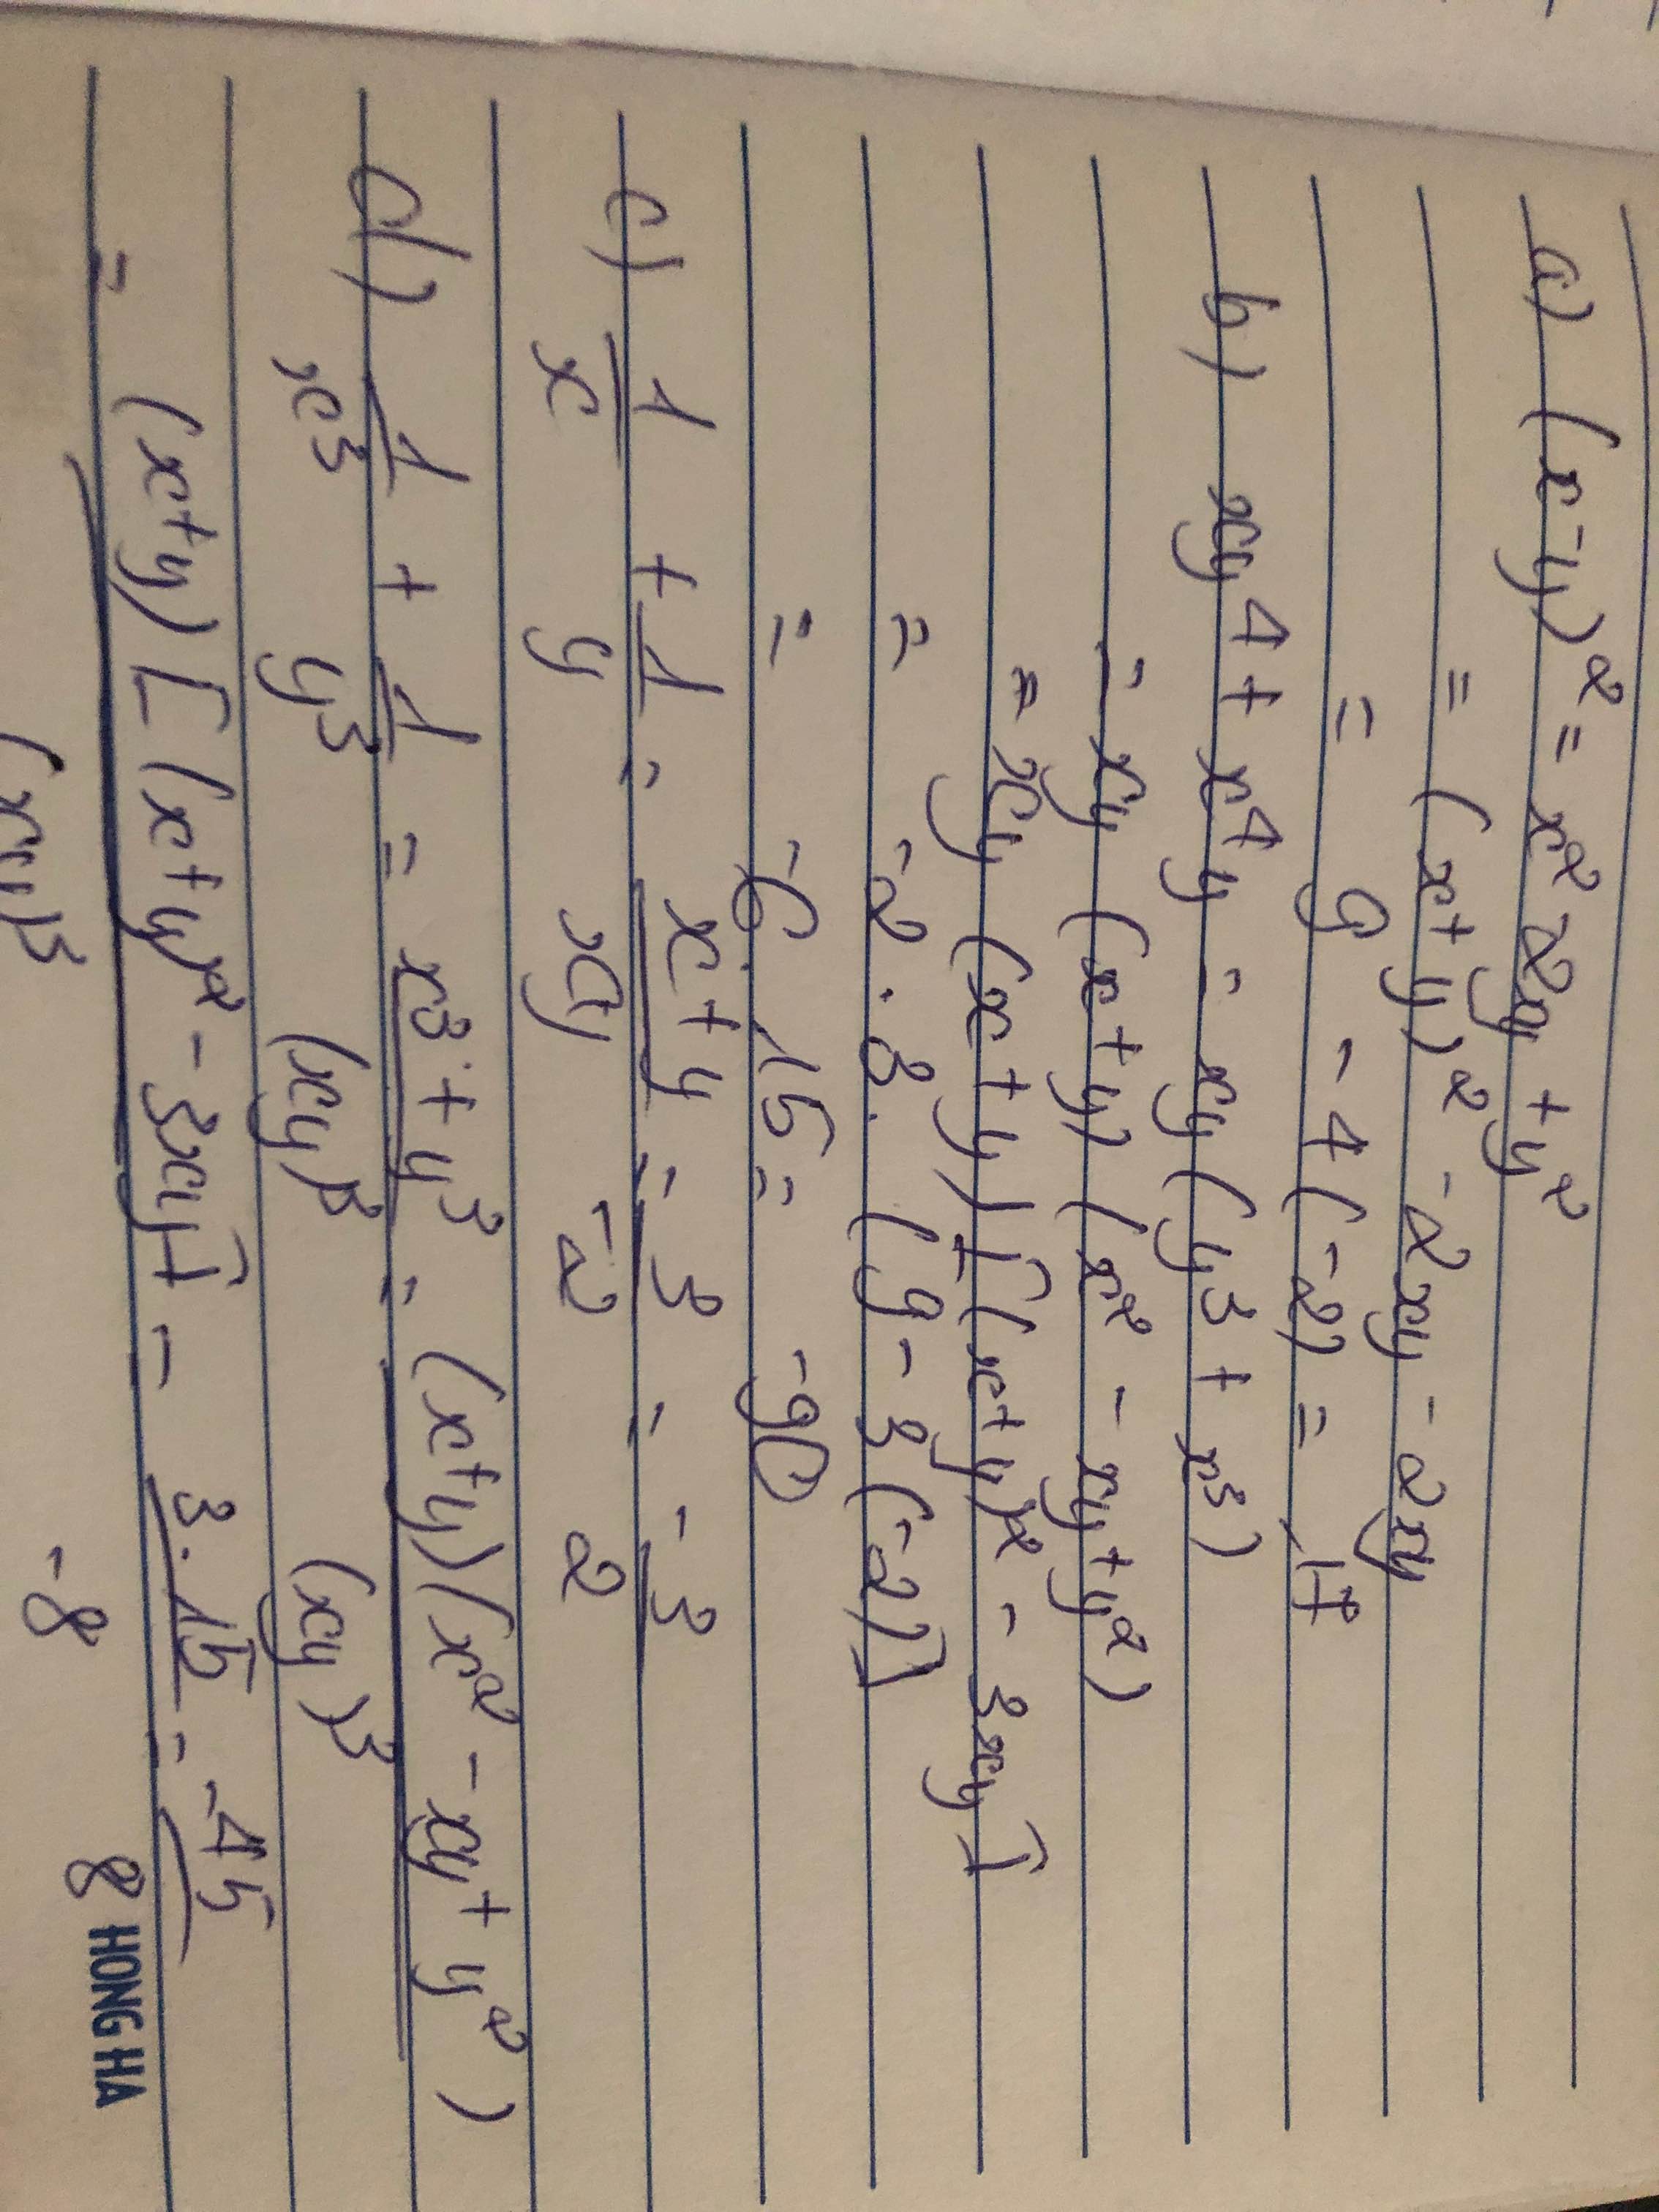 a) (x-y)² = x² - 2xy + y²
= (x+y)² - 2xy - 2xy
= 9 - 4(-2) = 17
b) xy⁴ + x⁴y = xy(y³ + x³)
= xy(x+y)(x² - xy + y²)
= xy(x+y)[(x+y)² - 3xy]
= -2.3.(9-3(-2)]
= -6.15 = -90
c) 1/x + 1/y = x+y/xy = 3/-2 = -3/2
d) 1/x³ + 1/y³ = x³+y³/(xy)³ = (x+y)(x² - xy + y²)/(xy)³
= (x+y)[(x+y)² - 3xy]/(xy)³ = 3.15/-8 = -45/8
HONG HA